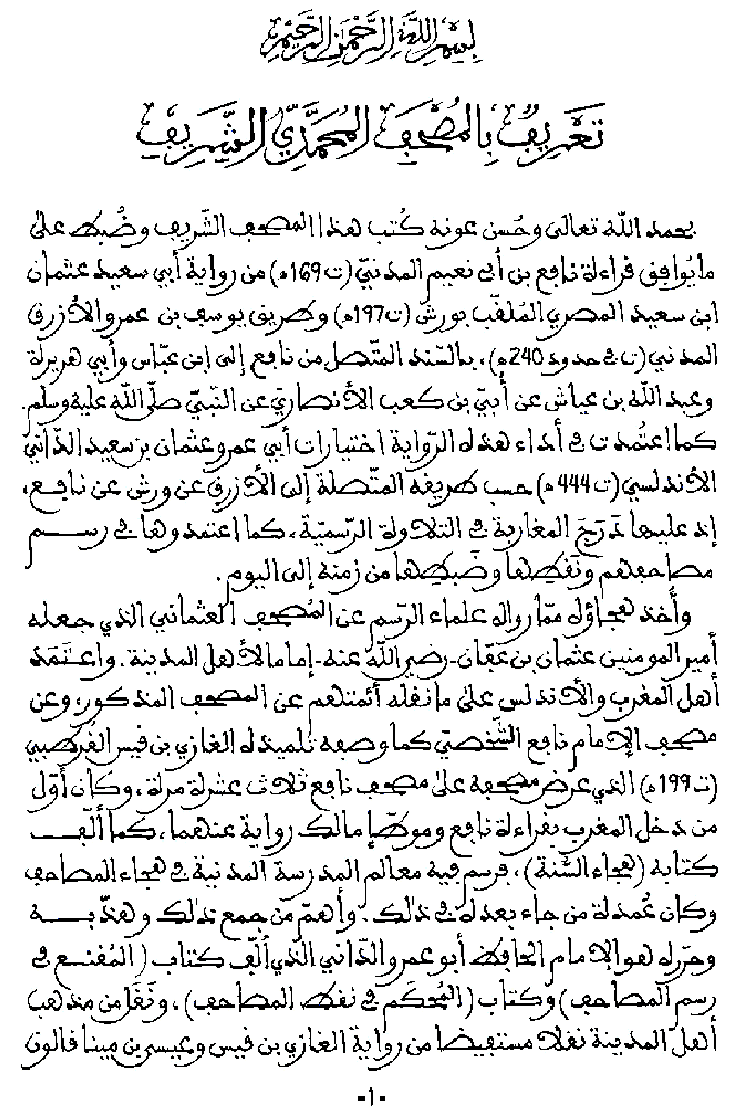 بسم الله الرحمن الرحيم
تعريف بالمصحف المحمدي الشريف
بحمد الله تعالى وحسن عونه كُتب هذا المصحف الشريف وضُبط على
ما يُوافق قراءة نافع بن أبي نعيم المدنيّ (ت169ه) من رواية أبي سعيد عثمان
ابن سعيد المصري المُلقّب بورش (ت197ه) وطريق يوسف بن عمرو الأزرق
المدني (ت في حدود 240ه)، بالسّند المتّصل من نافع إلى ابن عبّاس وأبي هريرة
وعبد الله بن عياش عن أُبيّ بن كعب الأنصاريّ عن النبيّ صلّى الله عليه وسلم.
كما اعتُمدت في أداء هذه الرّواية اختيارات أبي عمرو عثمان بن سعيد الدّانيّ
الأندلسي (ت444ه) حسب طريقه المتّصلة إلى الأزرق عن ورش عن نافع،
إذ عليها دَرَجَ المغاربة في التلاوة الرّسميّة، كما اعتمدوها في رسم
مصاحفهم ونَقطها وضَبطها من زمنه إلى اليوم.
وأخذ هجاؤه ممّا رواه علماء الرّسم عن المُصحف العثماني الذي جعله
أمير المومنين عثمان بن عفّان -رضي الله عنه- إماما لأهل المدينة. واعتَمَد
أهل المغرب والأندلس على ما نقله أئمتهم عن المصحف المذكور، وعن
مصحف الإمام نافع الشّخصيّ كما وصفه تلميذه الغازي بن قيس القُرطبي
(ت199ه) الذي عرض مصحفه على مصحف نافع ثلاث عشرة مرة، وكان أوّل
من دخل المغرب بقراءة نافع وموطّإ مالك رواية عنهما، كما ألّف
كتابه (هجاء السُّنة)، فرسم فيه معالم المدرسة المدنية في هجاء المصاحف
وكان عُمدة من جاء بعده في ذلك. وأهمّ من جمع ذلك وهذّبه
وحرّره هو الإمام الحافظ أبو عمرو الدّاني الذي ألّف كتاب (المُقنع في
رسم المصاحف) وكتاب (المُحكَم في نقط المصاحف)، ونَقَل من مذهب
أهل المدينة نقلا مستفيضا من رواية الغازي بن قيس وعيسى بن مينا قالون
-١-